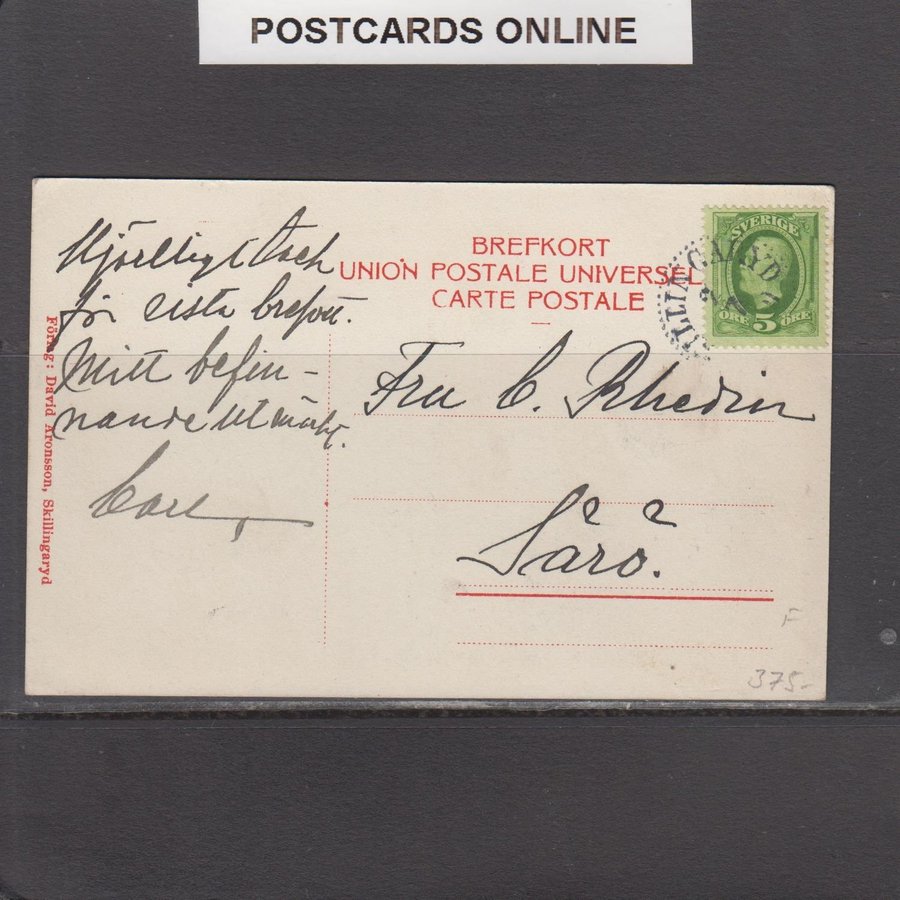 POSTCARDS ONLINE
BREFKORT
UNION POSTALE UNIVERSELLE
CARTE POSTALE
SVERIGE
ÖRE 5 ÖRE
SKILLINGARYD
Hjertligt tack
för sista brefvet.
Mitt befin-
nande utmärkt.
Carl
Fru C. Rhedin
Särö.
Förlag: David Aronsson, Skillingaryd
F
375-